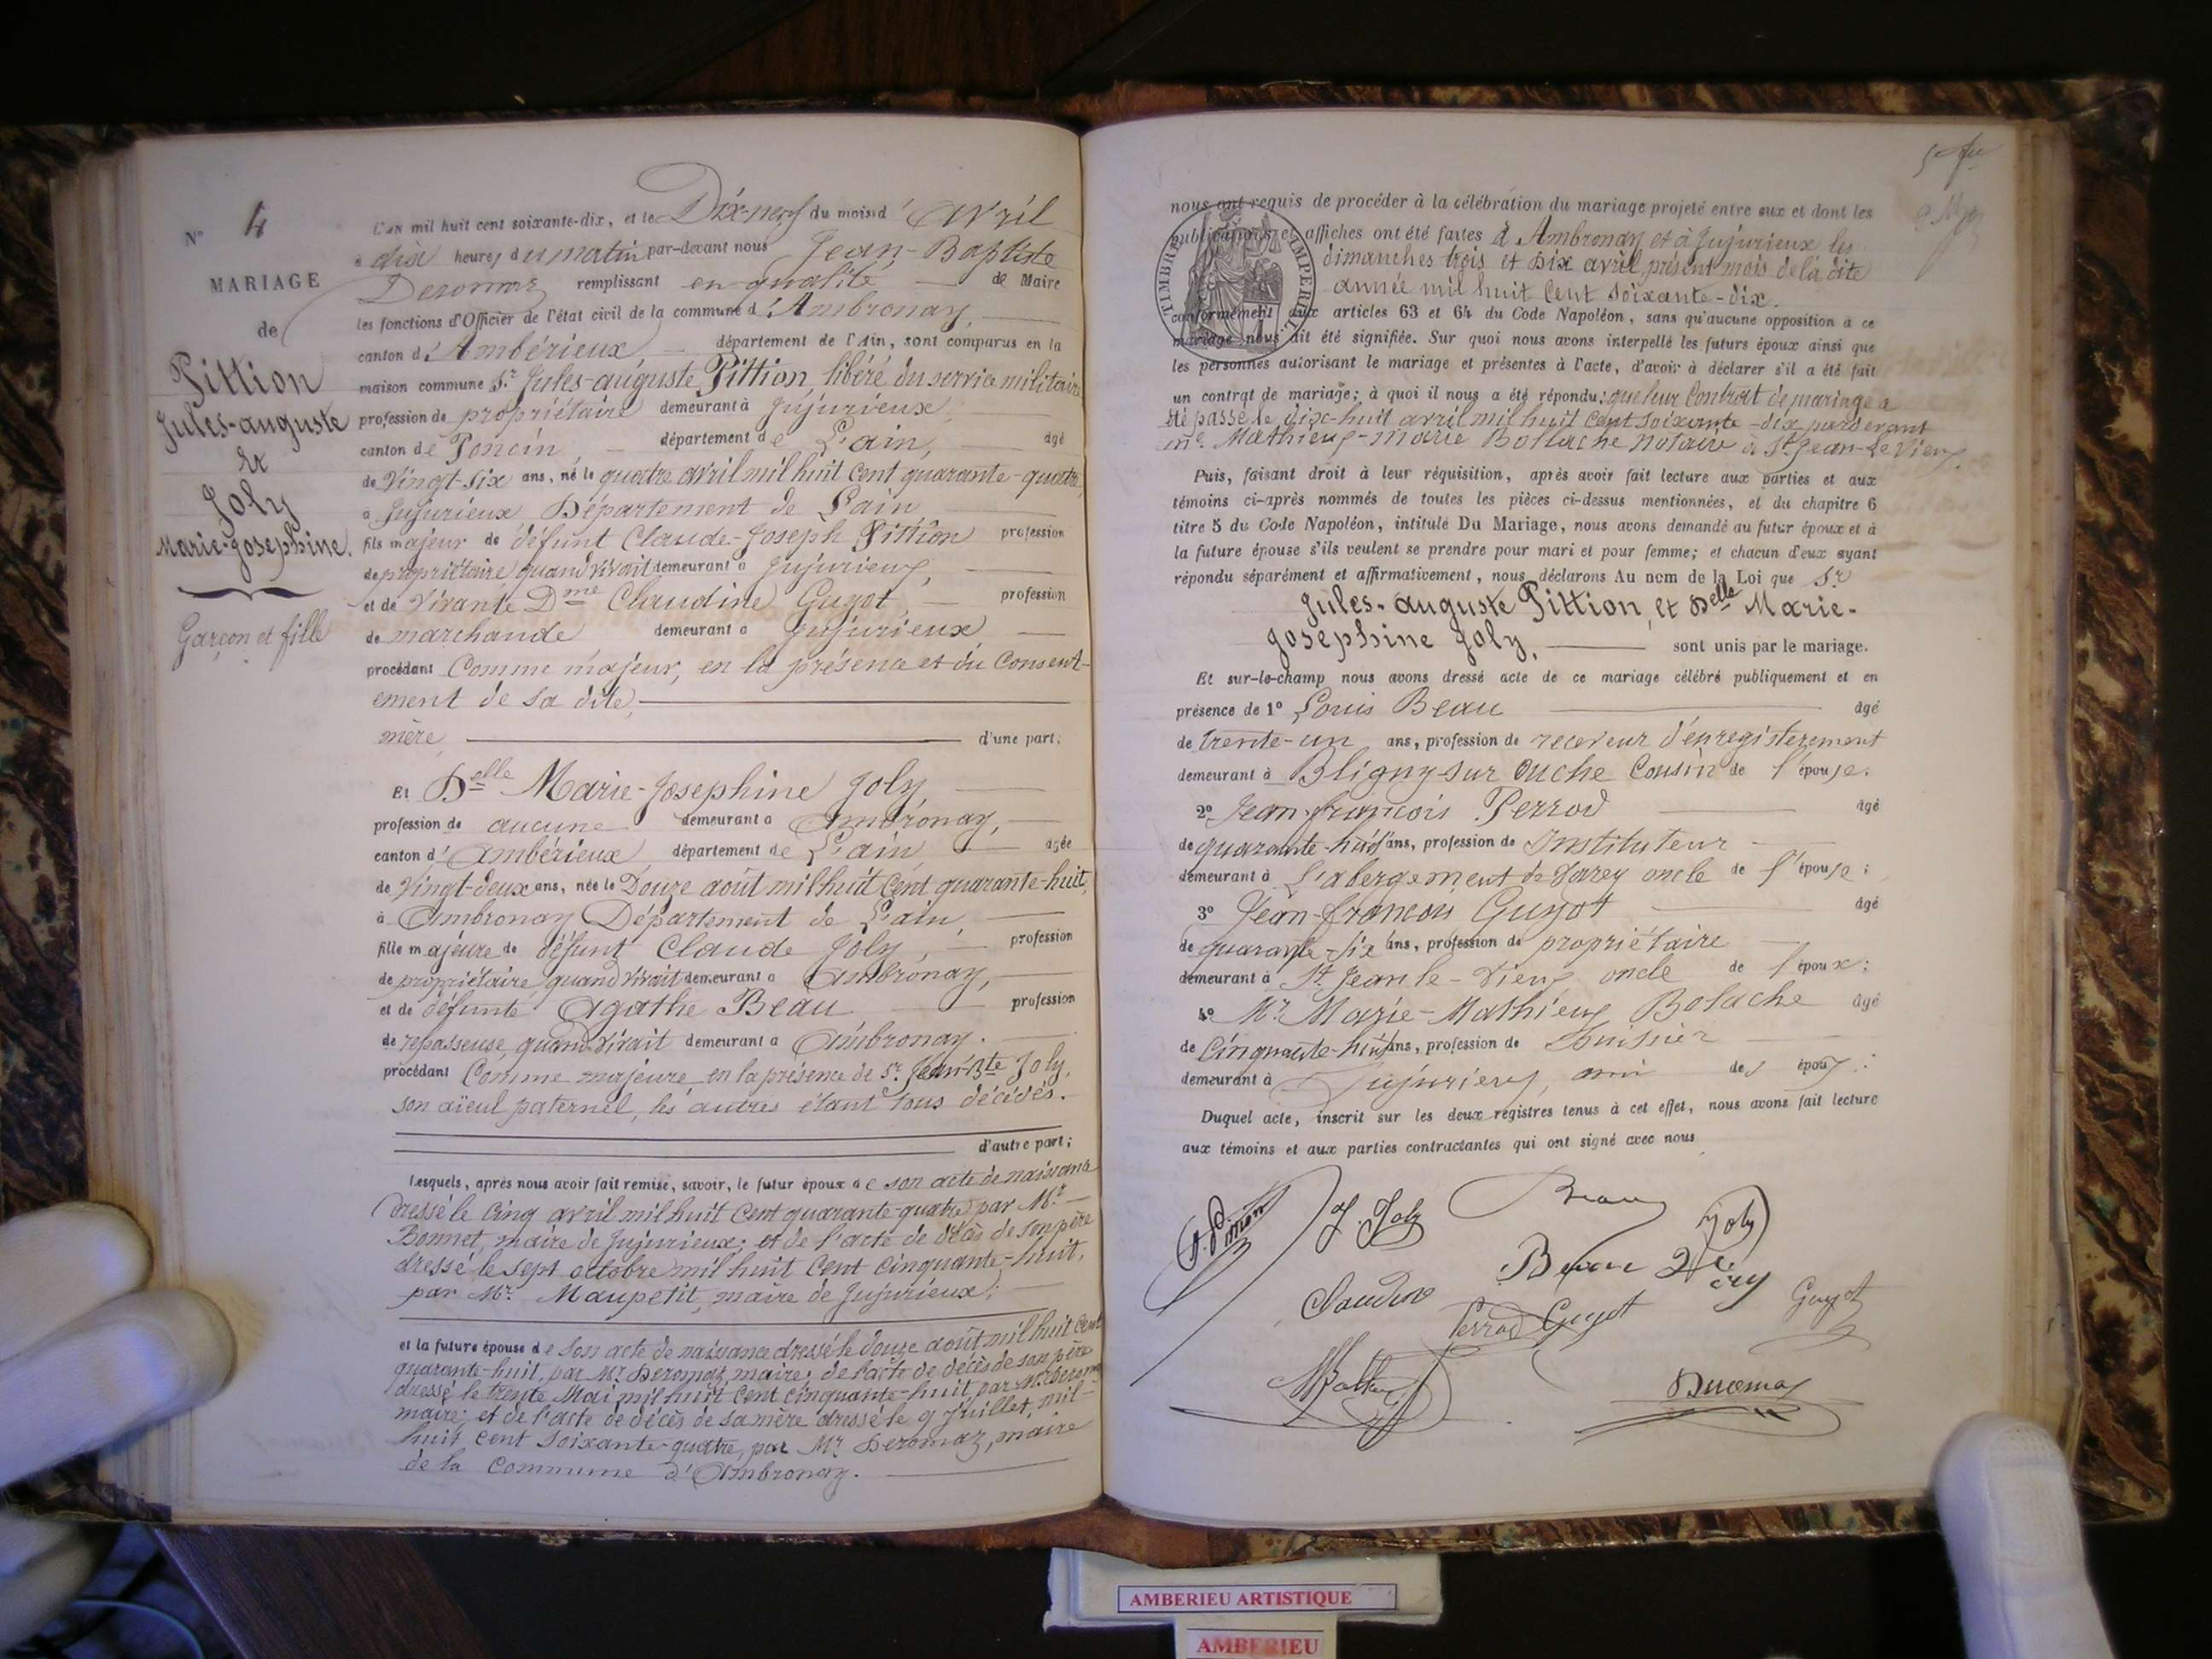 N° 4
MARIAGE
de
Pittion
Jules-auguste
&
Joly
Marie-Josephine.
Garçon et fille
L'AN mil huit cent soixante-dix, et le Dix-neuf du mois d'Avril
à dix heures du matin par-devant nous Jean-Baptiste
Deromaz remplissant en qualité de Maire
les fonctions d'Officier de l'état civil de la commune d'Ambronay,
canton d'Ambérieux, département de l'Ain, sont comparus en la
maison commune Sr. Jules-auguste Pittion, libéré du service militaire
profession de propriétaire demeurant à Jujurieux,
canton de Poncin département de L'ain, âgé
de Vingt-six ans, né le quatre avril mil huit cent quarante-quatre,
à Jujurieux Département de L'ain,
fils majeur de défunt Claude-Joseph Pittion profession
de propriétaire quand vivait demeurant à Jujurieux,
et de Vivante Dme Claudine Guyot, profession
de marchande demeurant à Jujurieux
procédant Comme majeur, en la présence et du Consent-
ement de sa dite,
mère d'une part;
Et Delle Marie-Josephine Joly,
profession de aucune demeurant à Ambronay,
canton d'Ambérieux, département de L'ain, âgée
de Vingt-deux ans, née le Douze août mil huit Cent quarante-huit,
à Ambronay Département de L'ain,
fille majeure de défunt Claude Joly, profession
de propriétaire quand vivait demeurant à Ambronay,
et de défunte Agathe Beau profession
de repasseuse quand vivait demeurant à Ambronay.
procédant Comme majeure en la présence de Sr. Jean-Bte Joly,
son aïeul paternel, les autres étant tous décédés.
d'autre part;
Lesquels, après nous avoir fait remise, savoir, le futur époux de son acte de naissance
dressé le cinq avril mil huit Cent quarante-quatre, par Mr.
Bonnet, maire de Jujurieux; et de l'acte de décès de son père
dressé le sept octobre mil huit Cent Cinquante-huit,
par Mr. Maupetit, maire de Jujurieux;
et la future épouse de son acte de naissance dressé le douze août mil huit cent
quarante-huit, par Mr Deromaz, maire; de l'acte de décès de son père
dressé le trente Mai mil huit Cent cinquante-huit, par Mr Deromaz
maire; et de l'acte de décès de sa mère dressé le 9 Juillet, mil-
huit Cent soixante-quatre, par Mr Deromaz, maire
de la Commune d'Ambronay.
nous ont requis de procéder à la célébration du mariage projeté entre eux et dont les
publications et affiches ont été faites à Ambronay et à Jujurieux les
dimanches trois et dix avril, présent mois de la dite
année mil huit cent soixante-dix.
TIMBRE IMPERIAL
conformément aux articles 63 et 64 du Code Napoléon, sans qu'aucune opposition à ce
mariage nous ait été signifiée. Sur quoi nous avons interpellé les futurs époux ainsi que
les personnes autorisant le mariage et présentes à l'acte, d'avoir à déclarer s'il a été fait
un contrat de mariage; à quoi il nous a été répondu: que leur Contrat de mariage a
été passé le dix-huit avril mil huit Cent soixante-dix pardevant
me. Mathieu-Marie Bollache notaire à St Jean-Le Vieux.
Puis, faisant droit à leur réquisition, après avoir fait lecture aux parties et aux
témoins ci-après nommés de toutes les pièces ci-dessus mentionnées, et du chapitre 6
titre 5 du Code Napoléon, intitulé Du Mariage, nous avons demandé au futur époux et à
la future épouse s'ils veulent se prendre pour mari et pour femme; et chacun d'eux ayant
répondu séparément et affirmativement, nous déclarons Au nom de la Loi que Sr
Jules-auguste Pittion, et Delle Marie-
Josephine Joly, sont unis par le mariage.
Et sur-le-champ nous avons dressé acte de ce mariage célébré publiquement et en
présence de 1° Louis Beau âgé
de trente-un ans, profession de receveur d'enregistrement
demeurant à Bligny-sur Ouche Cousin de l'épouse.
2° Jean-françois Perrod âgé
de quarante-huit ans, profession de Instituteur
demeurant à L'abergement de Varey oncle de l'épouse;
3° Jean-francois Guyot âgé
de quarante-six ans, profession de propriétaire
demeurant à St. Jean le-Vieux oncle de l'époux;
4° Mr. Marie-Mathieu Bolache âgé
de Cinquante-huit ans, profession de huissier
demeurant à Jujurieux, ami des époux:
Duquel acte, inscrit sur les deux régistres tenus à cet effet, nous avons fait lecture
aux témoins et aux parties contractantes qui ont signé avec nous
J. Joly Beau Joly
Beau
Claudine Perrod Guyot Guyot
Deromaz
AMBERIEU ARTISTIQUE
AMBERIEU